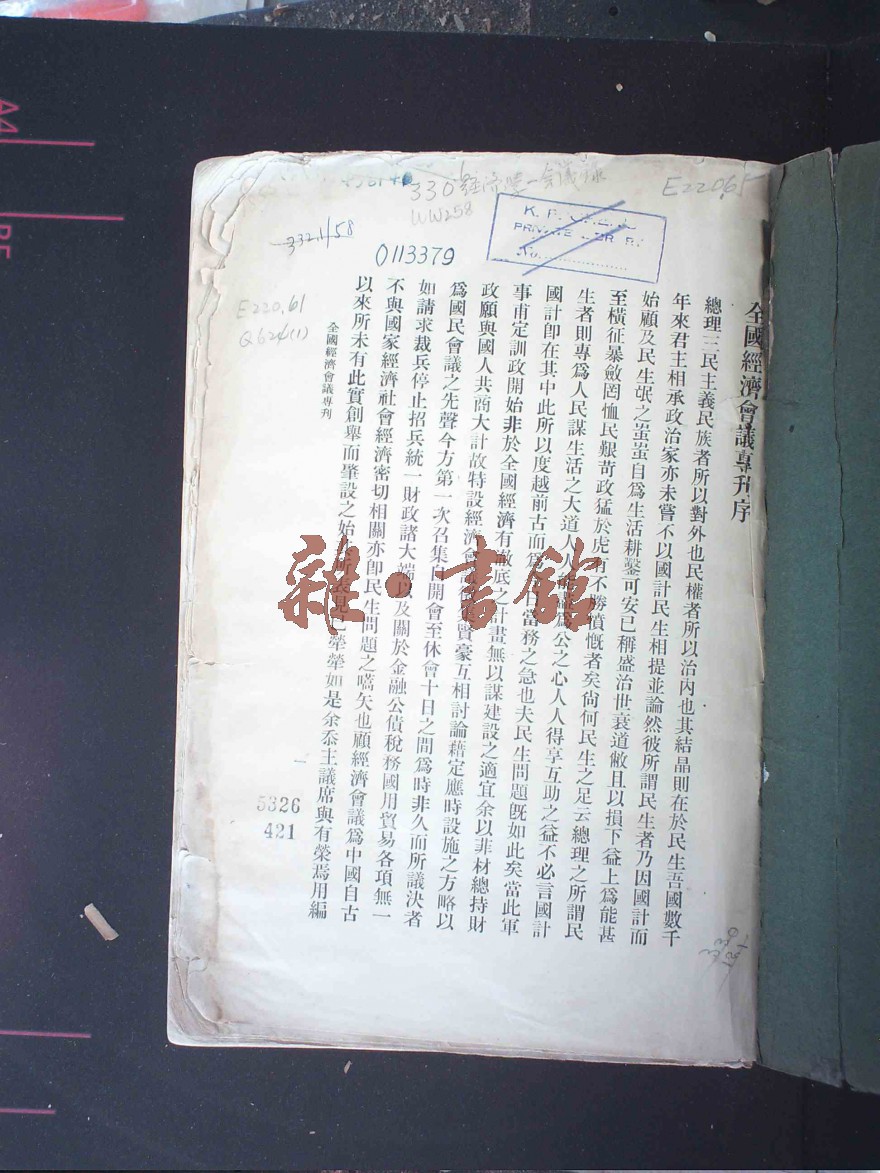 全國經濟會議專刊序
總理三民主義民族者所以對外也民權者所以治內也其結晶則在於民生吾國數千
年來君主相承政治家亦未嘗不以國計民生相提並論然彼所謂民生者乃因國計而
始顧及民生氓之蚩蚩自為生活耕鑿可安已稱盛治世衰道敝且以損下益上為能甚
至橫征暴斂罔恤民艱苛政猛於虎有不勝憤慨者矣尚何民生之足云總理之所謂民
生者則專為人民謀生活之大道人人公之心人人得享互助之益不必言國計
國計即在其中此所以度越前古而為今日當務之急也夫民生問題既如此矣當此軍
事甫定訓政開始非於全國經濟有徹底之計畫無以謀建設之適宜余以菲材總持財
政願與國人共商大計故特設經濟會議集賢豪互相討論藉定應時設施之方略以
為國民會議之先聲今方第一次召集自開會至休會十日之間為時非久而所議決者
如請求裁兵停止招兵統一財政諸大端以及關於金融公債稅務國用貿易各項無一
不與國家經濟社會經濟密切相關亦即民生問題之嚆矢也顧經濟會議為中國自古
以來所未有此實創舉而肇設之始表見已犖犖如是余忝主議席與有榮焉用編
全國經濟會議專刊
一
330經濟
WW258
E220.65
332.1/58
0113379
PRIVATE
No.
E220.61
Q624(1)
5326
421
雜·書館
A4